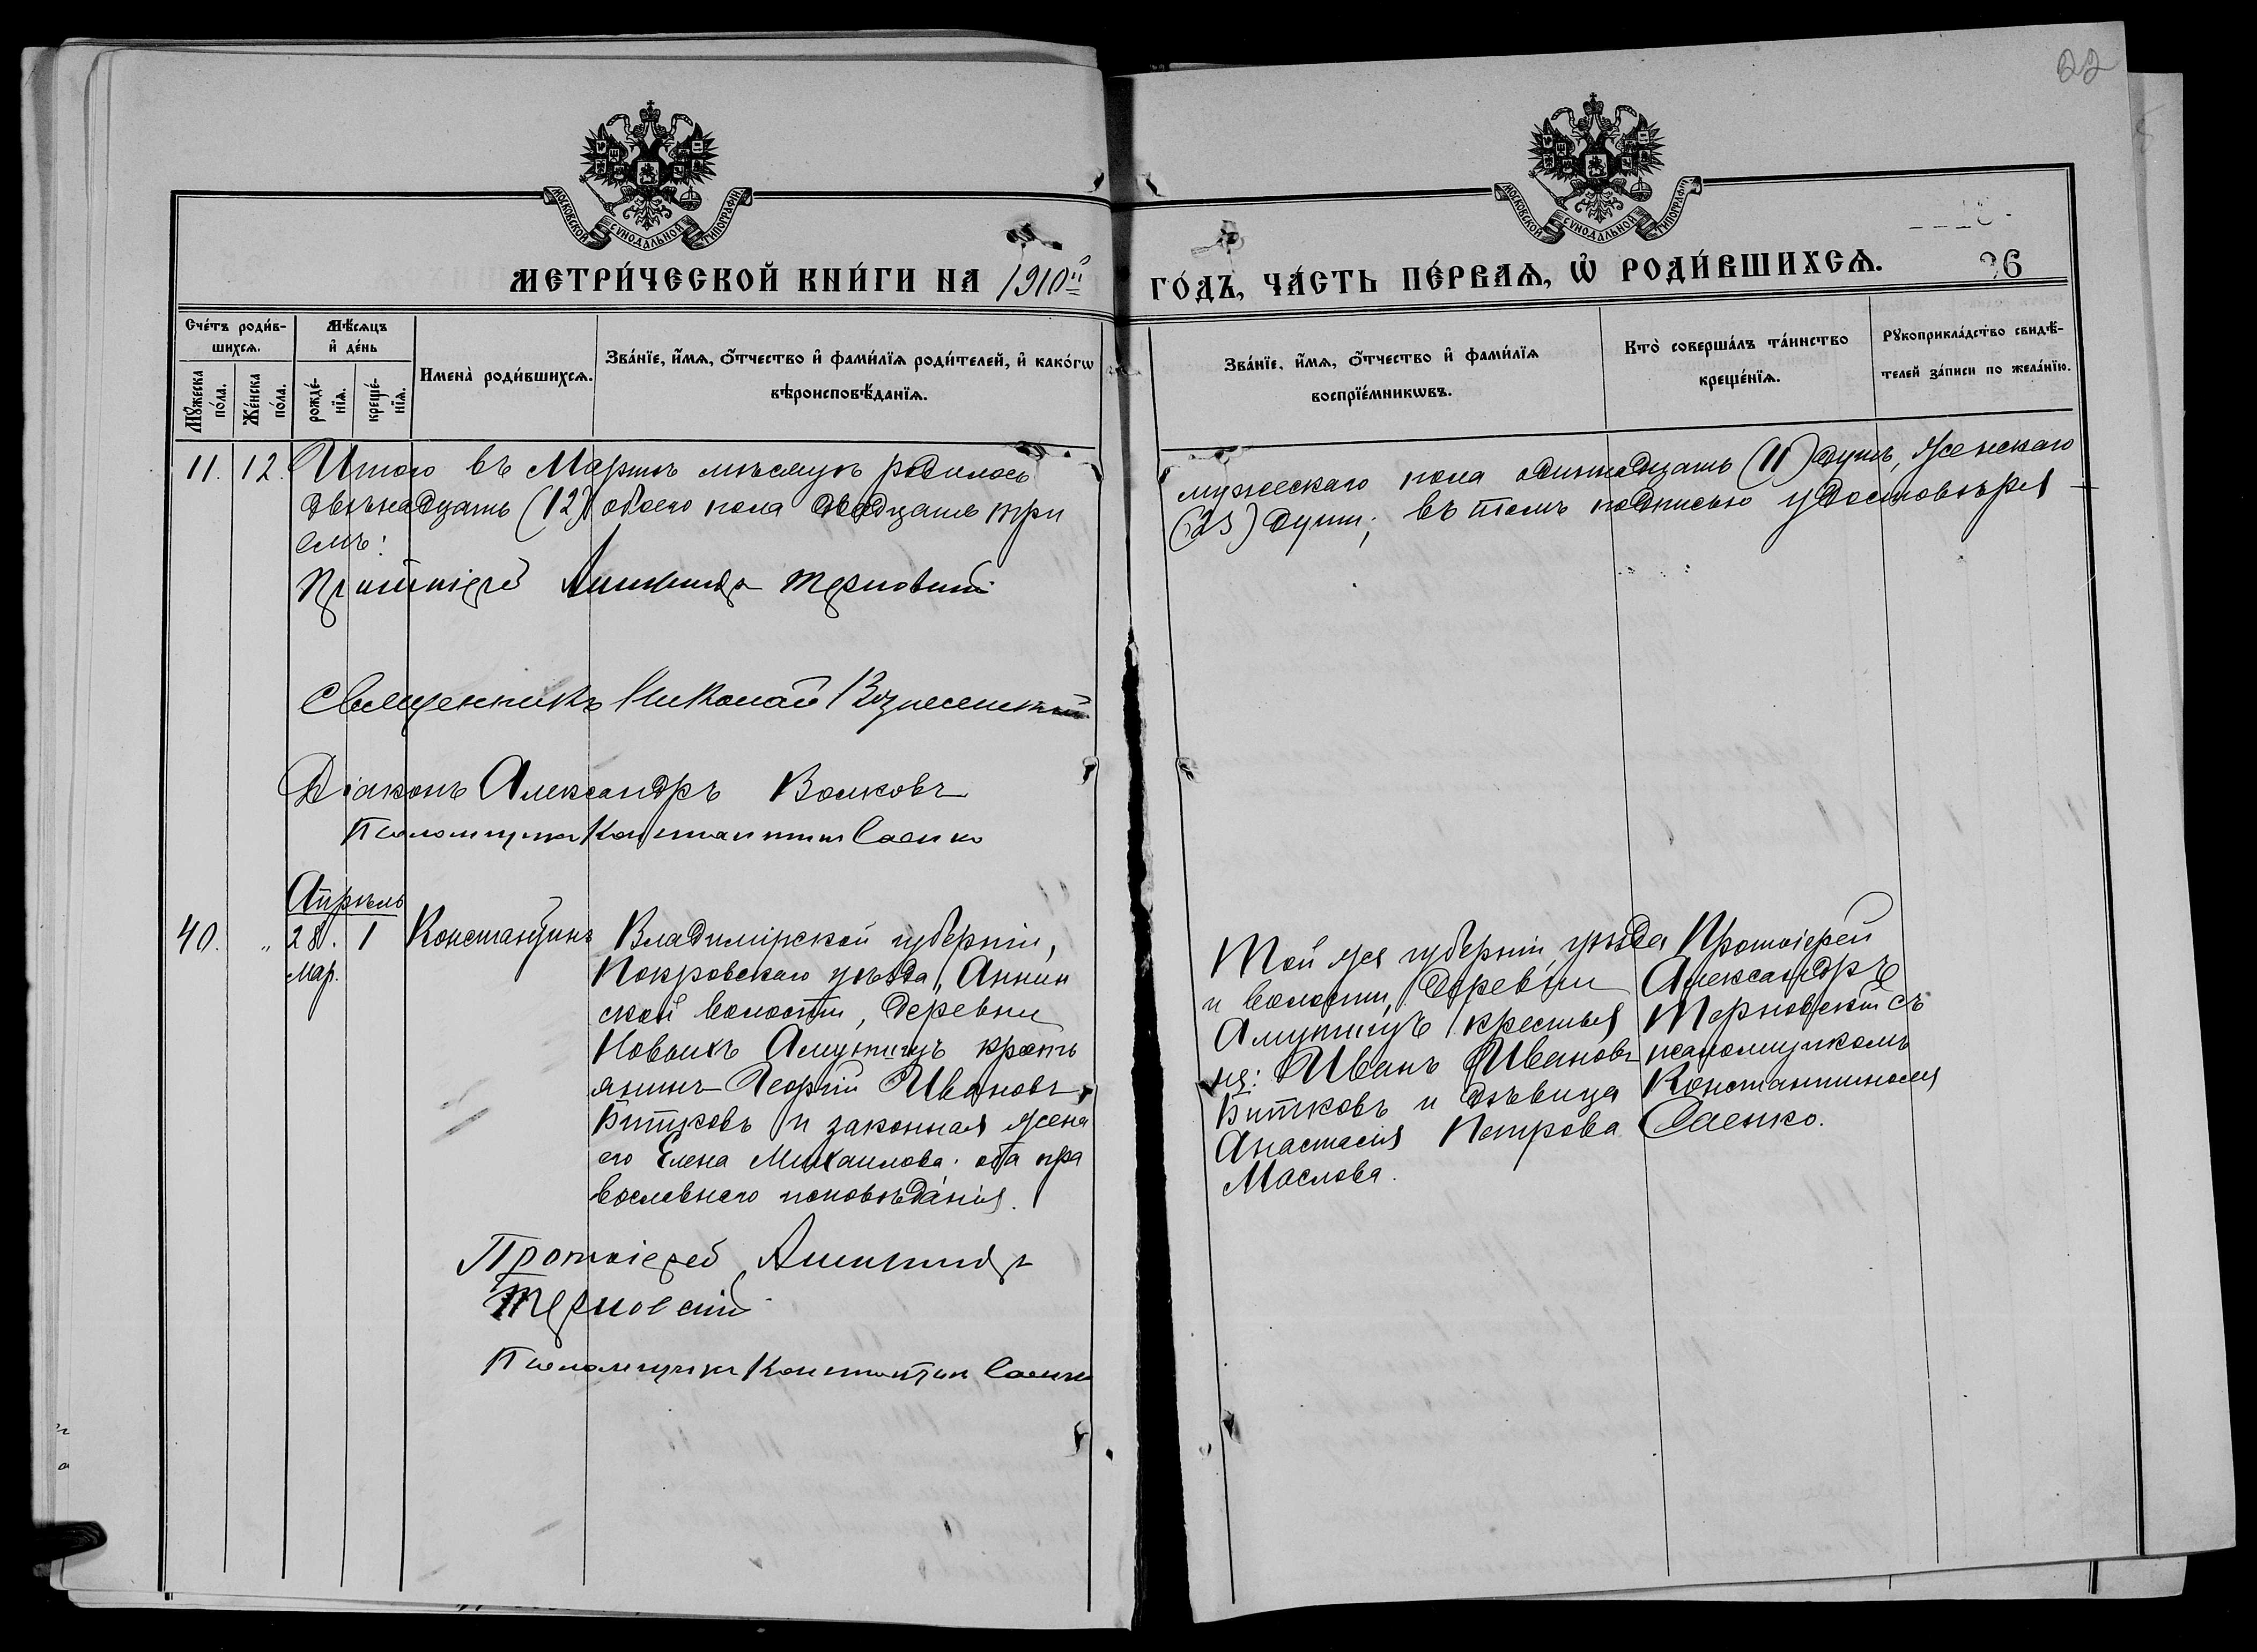 22
МОСКОВСКОЙ СѴНОДАЛЬНОЙ ТИПОГРАФІИ
МОСКОВСКОЙ СѴНОДАЛЬНОЙ ТИПОГРАФІИ
МЕТРИ́ЧЕСКОЙ КНИ́ГИ НА 1910й
ГО́ДЪ, ЧА́СТЬ ПЕ́РВАѦ, Ѽ РОДИ́ВШИХСѦ.
26
Сче́тъ роди́в-
шихсѧ.
Мѣ́сѧцъ
и҆ де́нь
Мꙋ́жеска
по́ла.
Же́нска
по́ла.
рожде́-
нїѧ.
креще́-
нїѧ.
Имена̀ роди́вшихсѧ.
Зва́нїе, и҆́мѧ, ѻ҆́тчество и҆ фами́лїѧ роди́телей, и҆ како́гѡ
вѣроисповѣ́данїѧ.
Зва́нїе, и҆́мѧ, ѻ҆́тчество и҆ фами́лїѧ
воспрїе́мникѡвъ.
Кто̀ соверша́лъ та́инство
креще́нїѧ.
Рꙋкоприкла́дство свидѣ́-
телей за́писи по жела́нїю.
11. 12. Итого въ Мартѣ мѣсяцѣ родилось
мужескаго пола одиннадцать (11) душъ, женскаго
двѣнадцать (12) обоего пола двадцать три
(23) душъ; въ томъ подписью удостовѣря
емъ:
Протоіерей Александръ Терновскій
Священникъ Николай Вознесенскій
Діаконъ Александръ Волковъ
Псаломщикъ Константинъ Саенко
Апрѣль
40. „ 28. 1 Константинъ
Мар.
Владимірской губерніи,
Покровскаго уѣзда, Аннин
ской волости, деревни
Новыхъ Омутищъ кресть
янинъ Георгій Ивановъ
Битковъ и законная жена
его Елена Михаилова. оба пра
вославнаго исповѣданія.
Той же губерніи, уѣзда
и волости, деревни
Омутищъ крестья
нѣ: Иванъ Ивановъ
Битковъ и дѣвица
Анастасія Петрова
Маслова.
Протоіерей
Александръ
Терновскій съ
псаломщикомъ
Константиномъ
Саенко.
Протоіерей Александръ
Терновскій
Псаломщикъ Константинъ Саенко